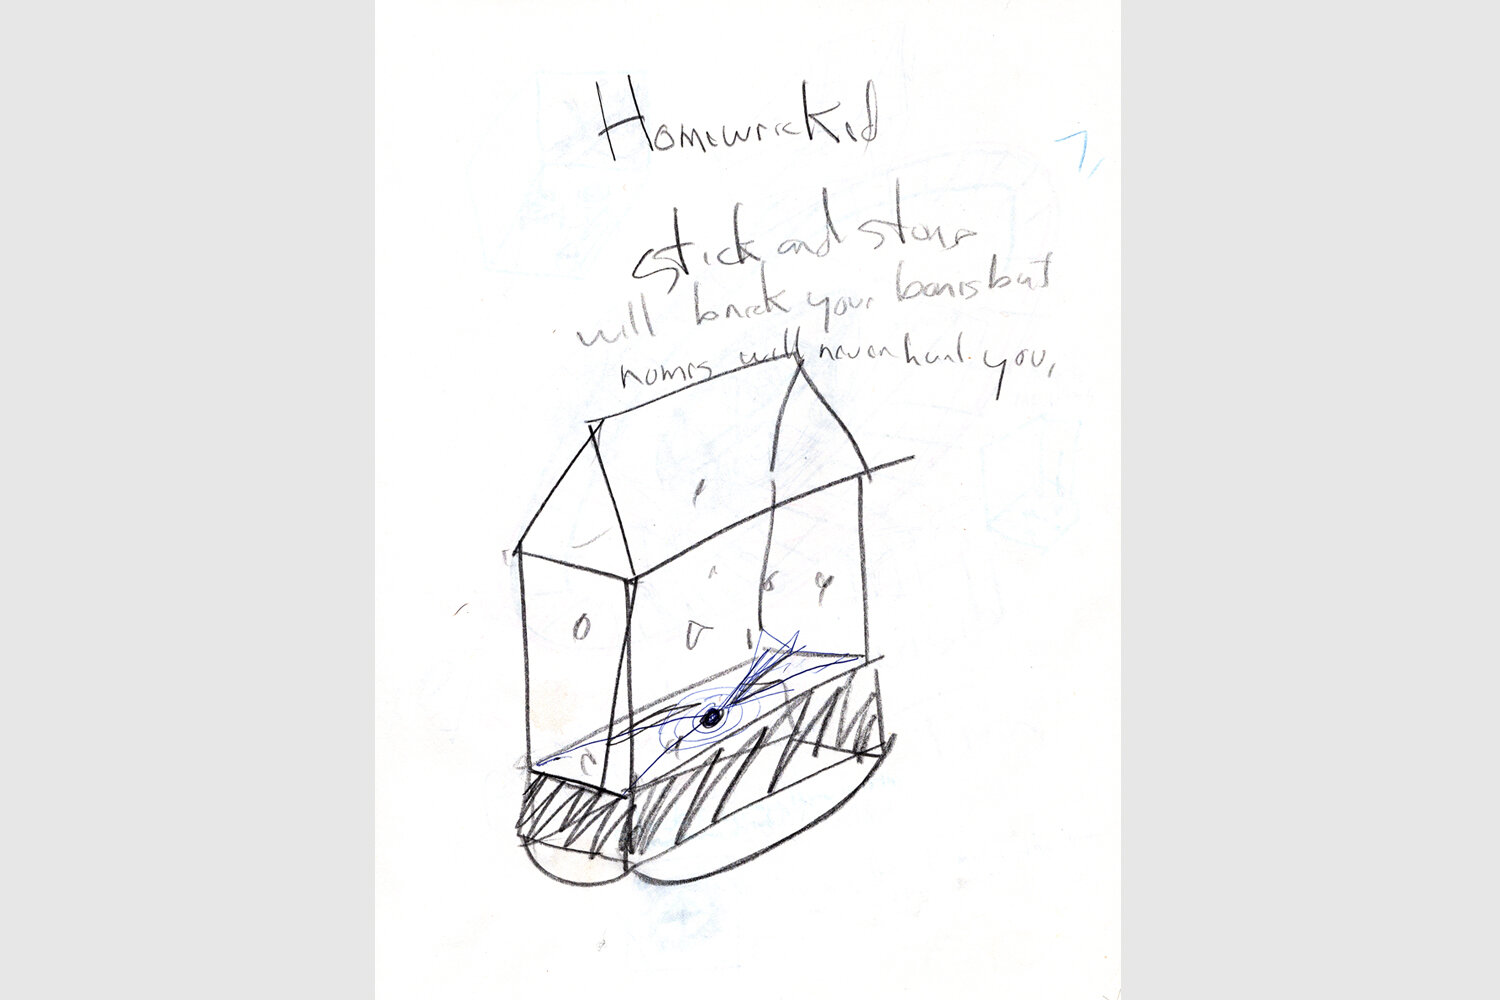 Homewrecked
stick and stone
will break your bones but
names will never hurt you,